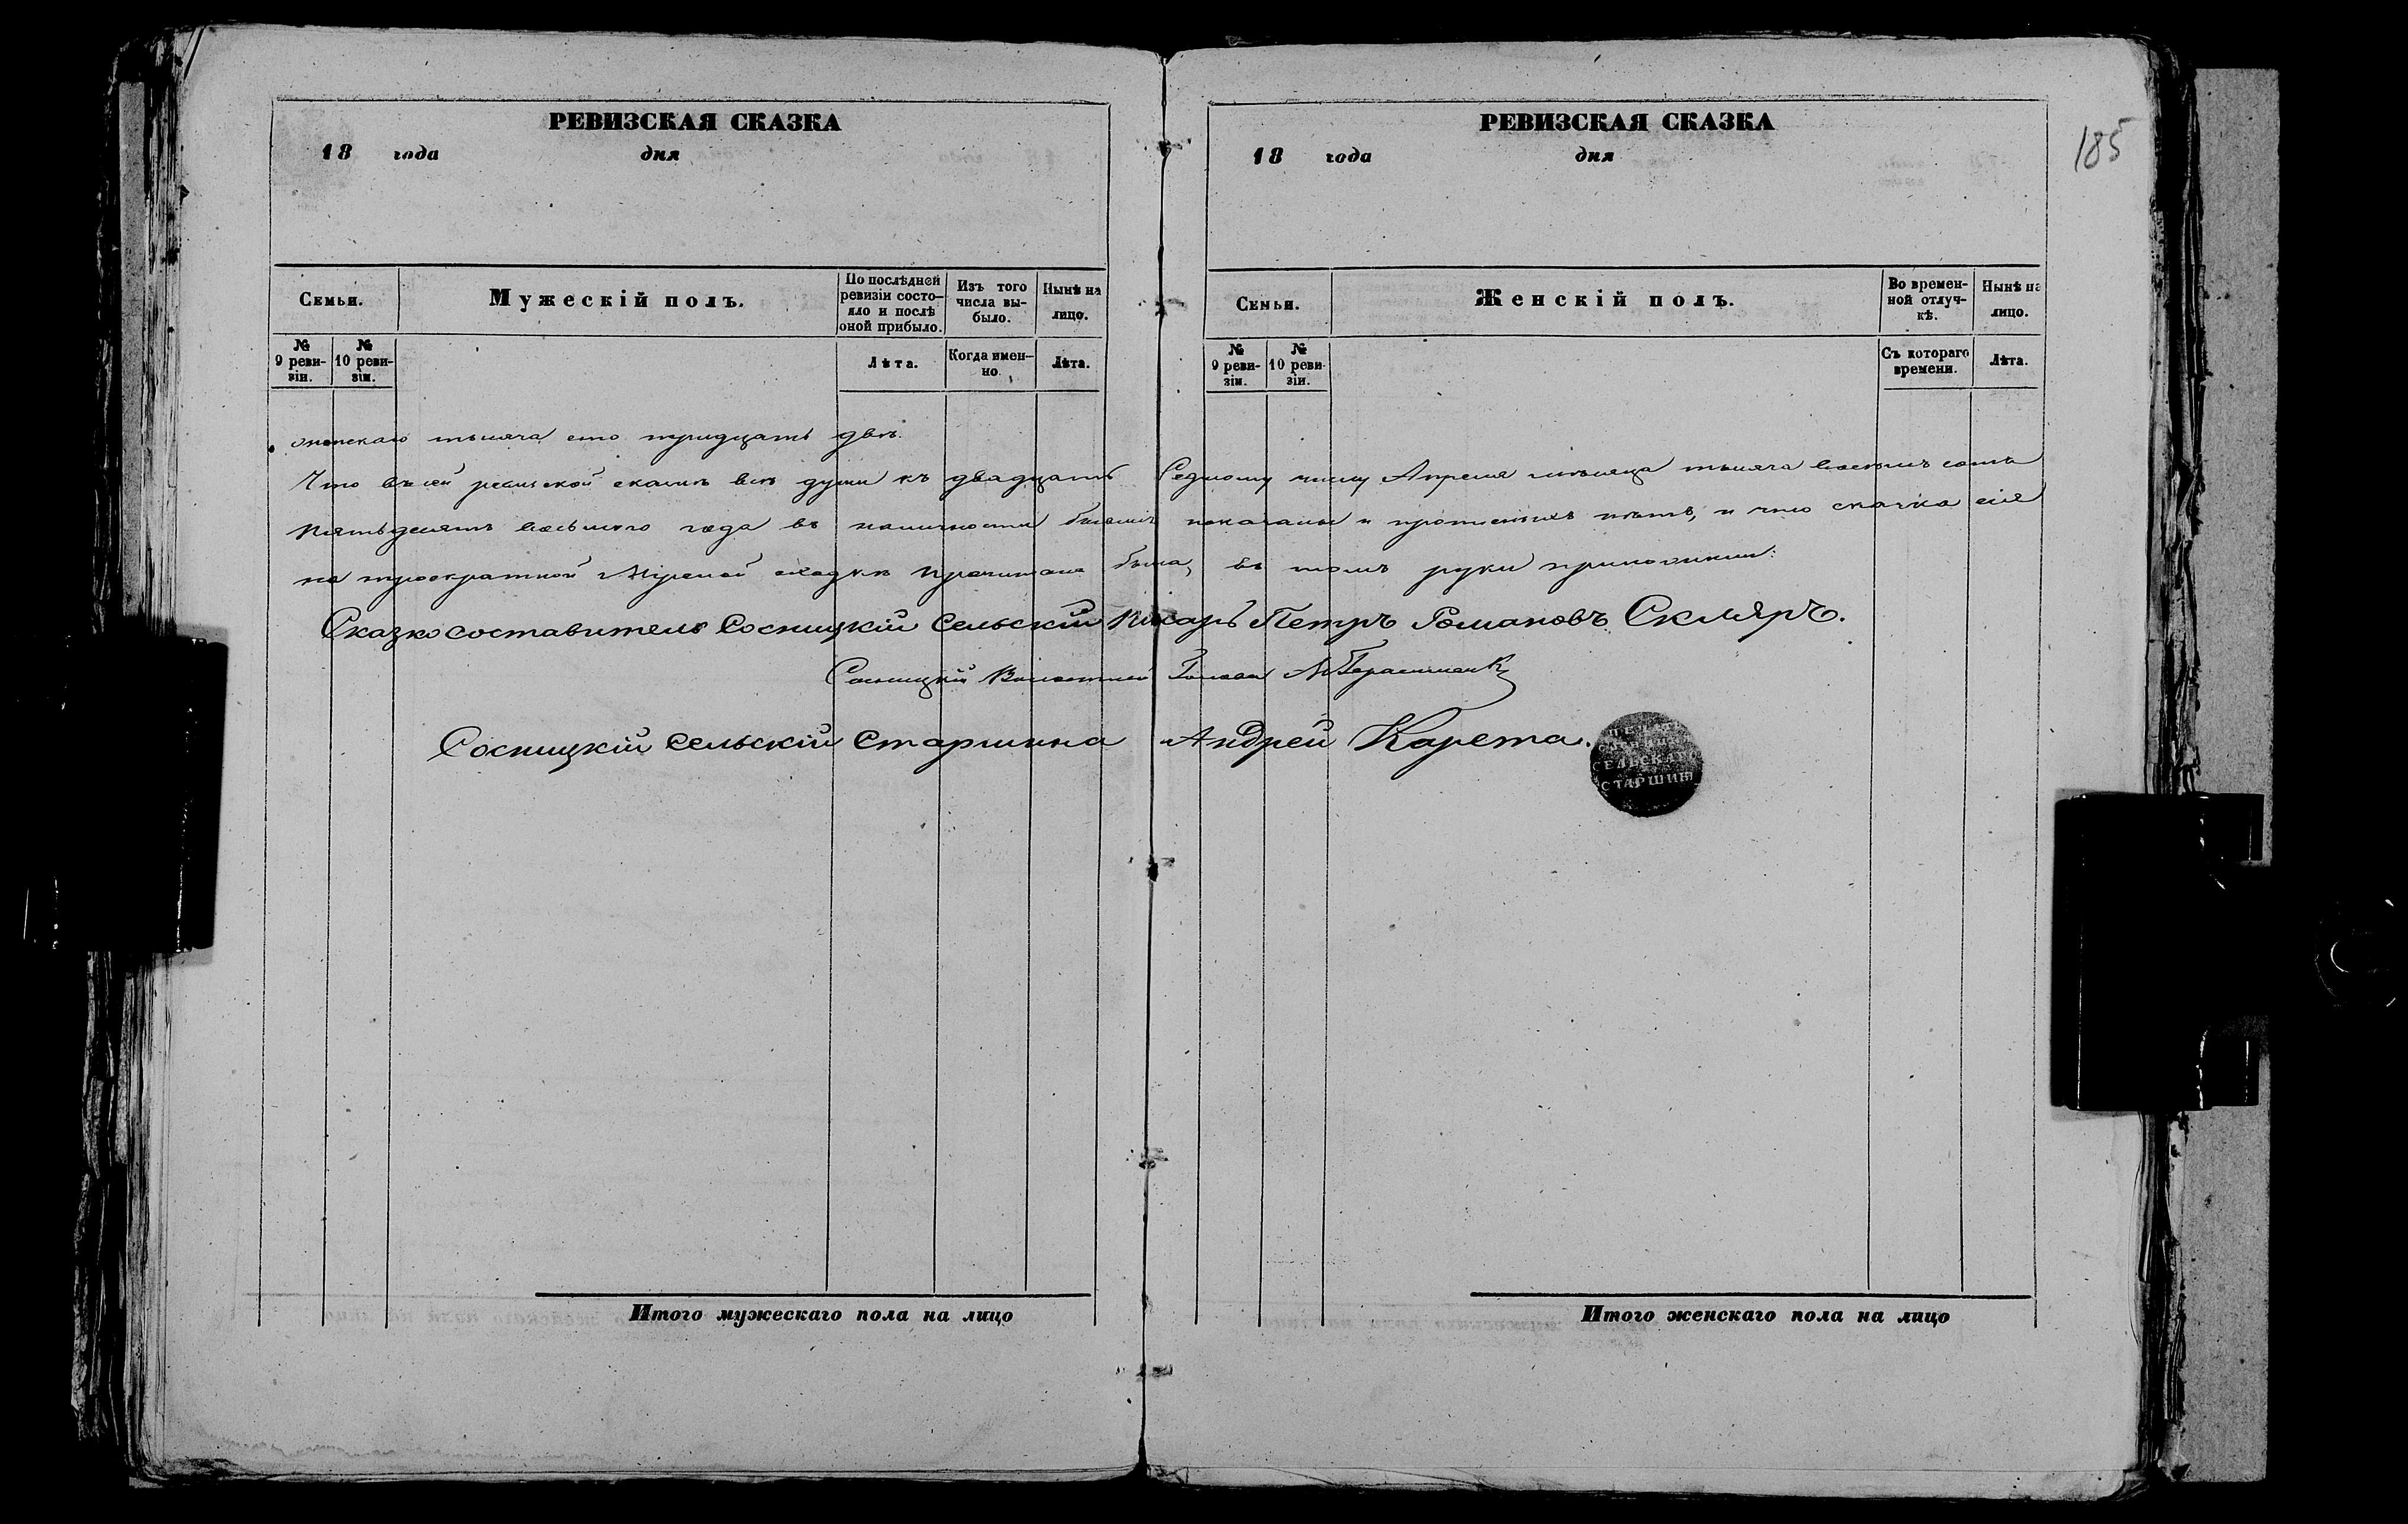 РЕВИЗСКАЯ СКАЗКА
18 года дня
Семьи.
Мужескій полъ.
По послѣдней ревизіи состояло и послѣ оной прибыло.
Изъ того числа выбыло.
Нынѣ на лицо.
№ 9 ревизіи.
№ 10 ревизіи.
Лѣта.
Когда именно
Лѣта.
РЕВИЗСКАЯ СКАЗКА
18 года дня
185
Семьи.
Женскій полъ.
Во временной отлучкѣ.
Нынѣ на лицо.
№ 9 ревизіи.
№ 10 ревизіи.
Съ котораго времени.
Лѣта.
женскаго тысяча сто тридцать двѣ.
Что въ сей ревизской сказкѣ всѣ души къ двадцать Седмому числу Апреля мѣсяца тысяча восемь сотъ
пятьдесятъ восьмого года въ наличности бывшіе показаны и прописныхъ нѣтъ, и что сказка сія
на троекратной Мірской сходкѣ прочитана была, въ томъ руки приложили:
Сказкосоставитель Сосницкій Сельскій Писарь Петръ Романовъ Скляръ.
Сосницкій Волостной Голова
Сосницкій Сельскій Старшина Андрей Карета.
СЕЛЬСКАГО
СТАРШИНЫ
Итого мужескаго пола на лицо
Итого женскаго пола на лицо